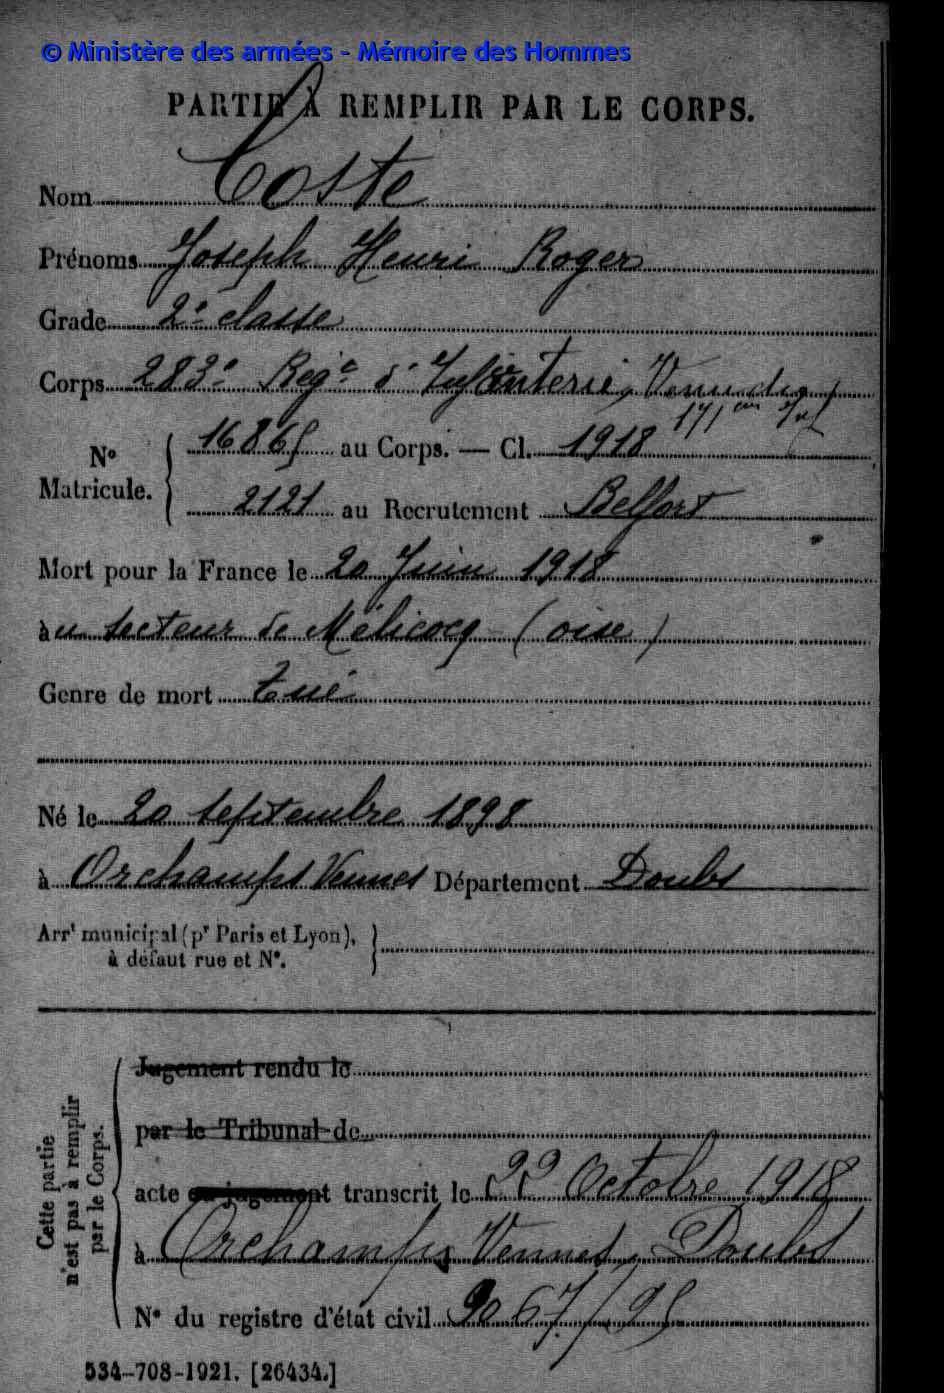 © Ministère des armées - Mémoire des Hommes
PARTIE À REMPLIR PAR LE CORPS.
Nom Coste
Prénoms Joseph Henri Roger
Grade 2e classe
Corps 283e Régt d'Infanterie, Venu du
171em Inf
No Matricule. 16865 au Corps. — Cl. 1918
2121 au Recrutement Belfort
Mort pour la France le 20 Juin 1918
au secteur de Mélicocq (oise)
Genre de mort tué
Né le 20 septembre 1898
à Orchamps Vennes Département Doubs
Arrt municipal (pr Paris et Lyon),
à défaut rue et No.
Cette partie
n'est pas à remplir
par le Corps.
Jugement rendu le
par le Tribunal de
acte ou jugement transcrit le 22 Octobre 1918
à Orchamps Vennes, Doubs
No du registre d'état civil
534-708-1921. [26434.]